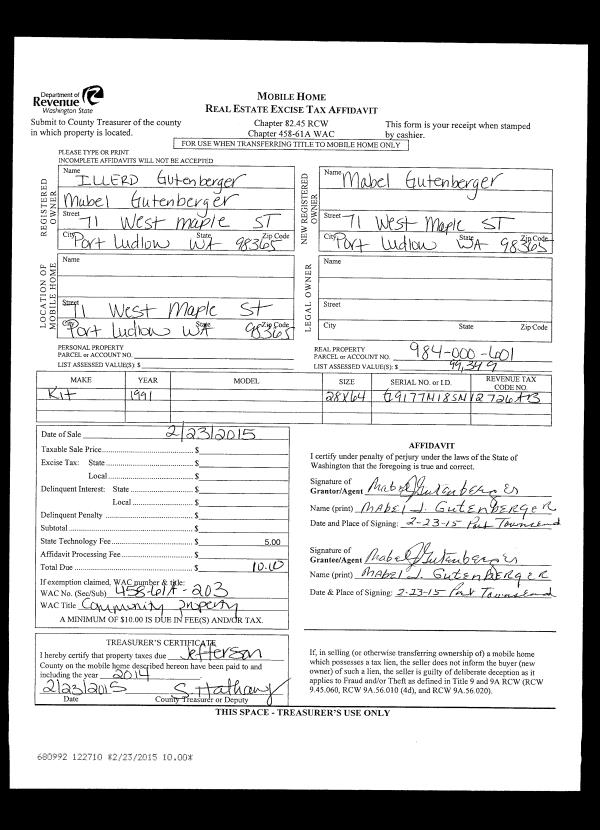 Department of
Revenue
Washington State
Submit to County Treasurer of the county
in which property is located.
MOBILE HOME
REAL ESTATE EXCISE TAX AFFIDAVIT
Chapter 82.45 RCW
Chapter 458-61A WAC
This form is your receipt when stamped
by cashier.
FOR USE WHEN TRANSFERRING TITLE TO MOBILE HOME ONLY
PLEASE TYPE OR PRINT
INCOMPLETE AFFIDAVITS WILL NOT BE ACCEPTED
REGISTERED OWNER
Name ILLERD Gutenberger
Mabel Gutenberger
Street 71 West maple ST
City Port Ludlow State WA Zip Code 98365
NEW REGISTERED OWNER
Name Mabel Gutenberger
Street 71 West Maple ST
City Port Ludlow State WA Zip Code 98365
LOCATION OF MOBILE HOME
Name
Street 71 West Maple St
City Port Ludlow State WA Zip Code 98365
LEGAL OWNER
Name
Street
City State Zip Code
PERSONAL PROPERTY
PARCEL or ACCOUNT NO.
LIST ASSESSED VALUE(S): $
REAL PROPERTY
PARCEL or ACCOUNT NO. 984-000-601
LIST ASSESSED VALUE(S): $ 99,349
MAKE YEAR MODEL SIZE SERIAL NO. or I.D. REVENUE TAX CODE NO.
Kit 1991 28X64
Date of Sale 2/23/2015
Taxable Sale Price $
Excise Tax: State $
Local $
Delinquent Interest: State $
Local $
Delinquent Penalty $
Subtotal $
State Technology Fee $ 5.00
Affidavit Processing Fee $
Total Due $ 10.00
If exemption claimed, WAC number & title:
WAC No. (Sec/Sub) 458-61A-203
WAC Title Community property
A MINIMUM OF $10.00 IS DUE IN FEE(S) AND/OR TAX.
AFFIDAVIT
I certify under penalty of perjury under the laws of the State of
Washington that the foregoing is true and correct.
Signature of
Grantor/Agent Mabel J Gutenberger
Name (print) MABEL J. GUTENBERGER
Date and Place of Signing: 2-23-15 Port Townsend
Signature of
Grantee/Agent Mabel J Gutenberger
Name (print) MABEL J. GUTENBERGER
Date & Place of Signing: 2-23-15 Port Townsend
TREASURER'S CERTIFICATE
I hereby certify that property taxes due Jefferson
County on the mobile home described hereon have been paid to and
including the year 2014
2/23/2015 S. Hathaway
Date County Treasurer or Deputy
If, in selling (or otherwise transferring ownership of) a mobile home
which possesses a tax lien, the seller does not inform the buyer (new
owner) of such a lien, the seller is guilty of deliberate deception as it
applies to Fraud and/or Theft as defined in Title 9 and 9A RCW (RCW
9.45.060, RCW 9A.56.010 (4d), and RCW 9A.56.020).
THIS SPACE - TREASURER'S USE ONLY
680992 122710 *2/23/2015 10.00*